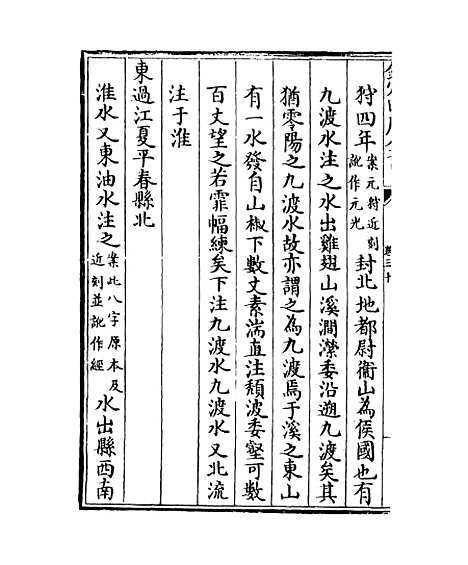 狩四年案元狩近刻訛作元光封北地都尉衛山為侯國也有
九渡水注之水出雞翅山溪澗瀠委沿遡九渡矣其
猶零陽之九渡水故亦謂之為九渡焉于溪之東山
有一水發自山椒下數丈素湍直注頹波委壑可數
百丈望之若霏幅練矣下注九渡水九渡水又北流
注于淮
東過江夏平春縣北
淮水又東油水注之案此八字原本及近刻並訛作經水出縣西南